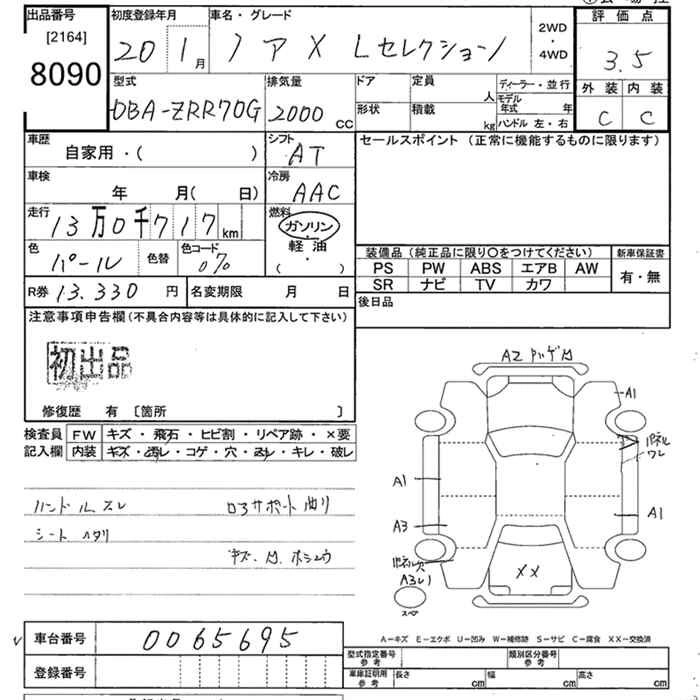 出品番号 初度登録年月 車名・グレード 評価点
[2164] 8090 20 1月 ノア X Lセレクション 2WD・4WD 3.5
型式 排気量 ドア 定員 人 ディーラー・並行 外装 内装
DBA-ZRR70G 2000CC 形状 積載 kg モデル年式 年 ハンドル 左・右 C C
車歴 自家用・( ) シフト AT セールスポイント (正常に機能するものに限ります)
車検 年 月( 日) 冷房 AAC
走行 13万0千717km 燃料 ガソリン・軽油 ( ・ )
色 パール 色替 色コード 070
装備品(純正品に限り○をつけてください) 新車保証書
PS PW ABS エアB AW 有・無
SR ナビ TV カワ
R券 13.330円 名変期限 月 日 後日品
注意事項申告欄(不具合内容等は具体的に記入して下さい)
初出品
修復歴 有 〔箇所 〕
検査員記入欄 FW キズ・飛石・ヒビ割・リペア跡・×要
内装 キズ・汚レ・コゲ・穴・スレ・キレ・破レ
ハンドルスレ ロアサポート曲リ
シートヘタリ
キズ・凹 ホシュウ
A1
パネル
ワレ
A1
A3
A1
XX
スペア
A…キズ E…エクボ U…凹み W…補修跡 S…サビ C…腐食 XX…交換済
車台番号 0065695
型式指定番号 参考 類別区分番号 参考
登録番号
車庫証明用 参考 長さ cm 幅 cm 高さ cm